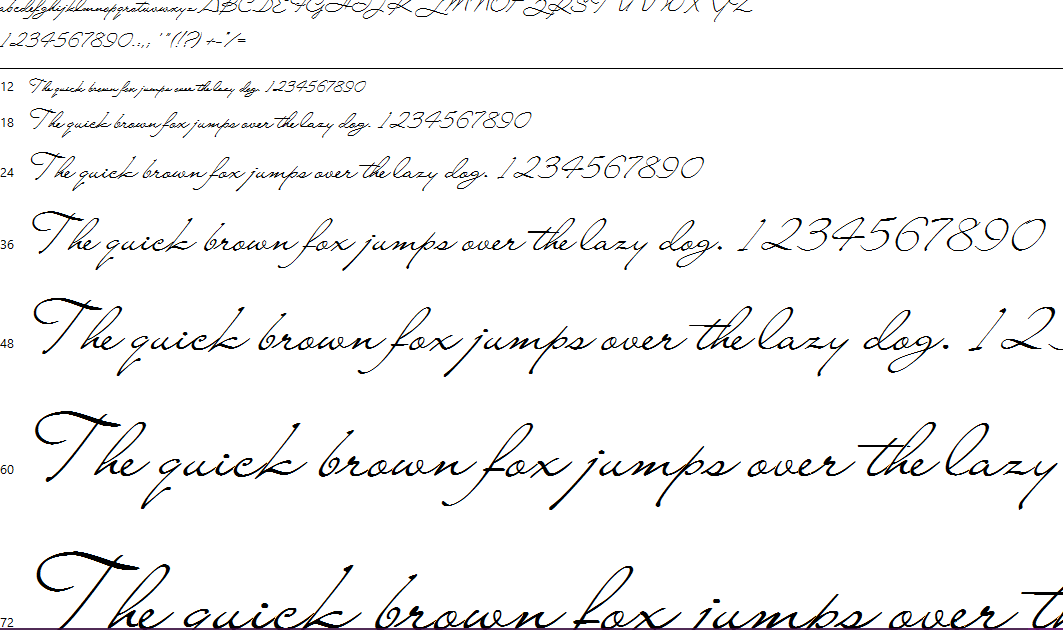 abcdefghijklmnopqrstuvwxyz ABCDEFGHIJKLMNOPQRSTUVWXYZ
1234567890.:,; ' " (!?) +-*/=
12 The quick brown fox jumps over the lazy dog. 1234567890
18 The quick brown fox jumps over the lazy dog. 1234567890
24 The quick brown fox jumps over the lazy dog. 1234567890
36 The quick brown fox jumps over the lazy dog. 1234567890
48 The quick brown fox jumps over the lazy dog. 12
60 The quick brown fox jumps over the lazy
72 The quick brown fox jumps over